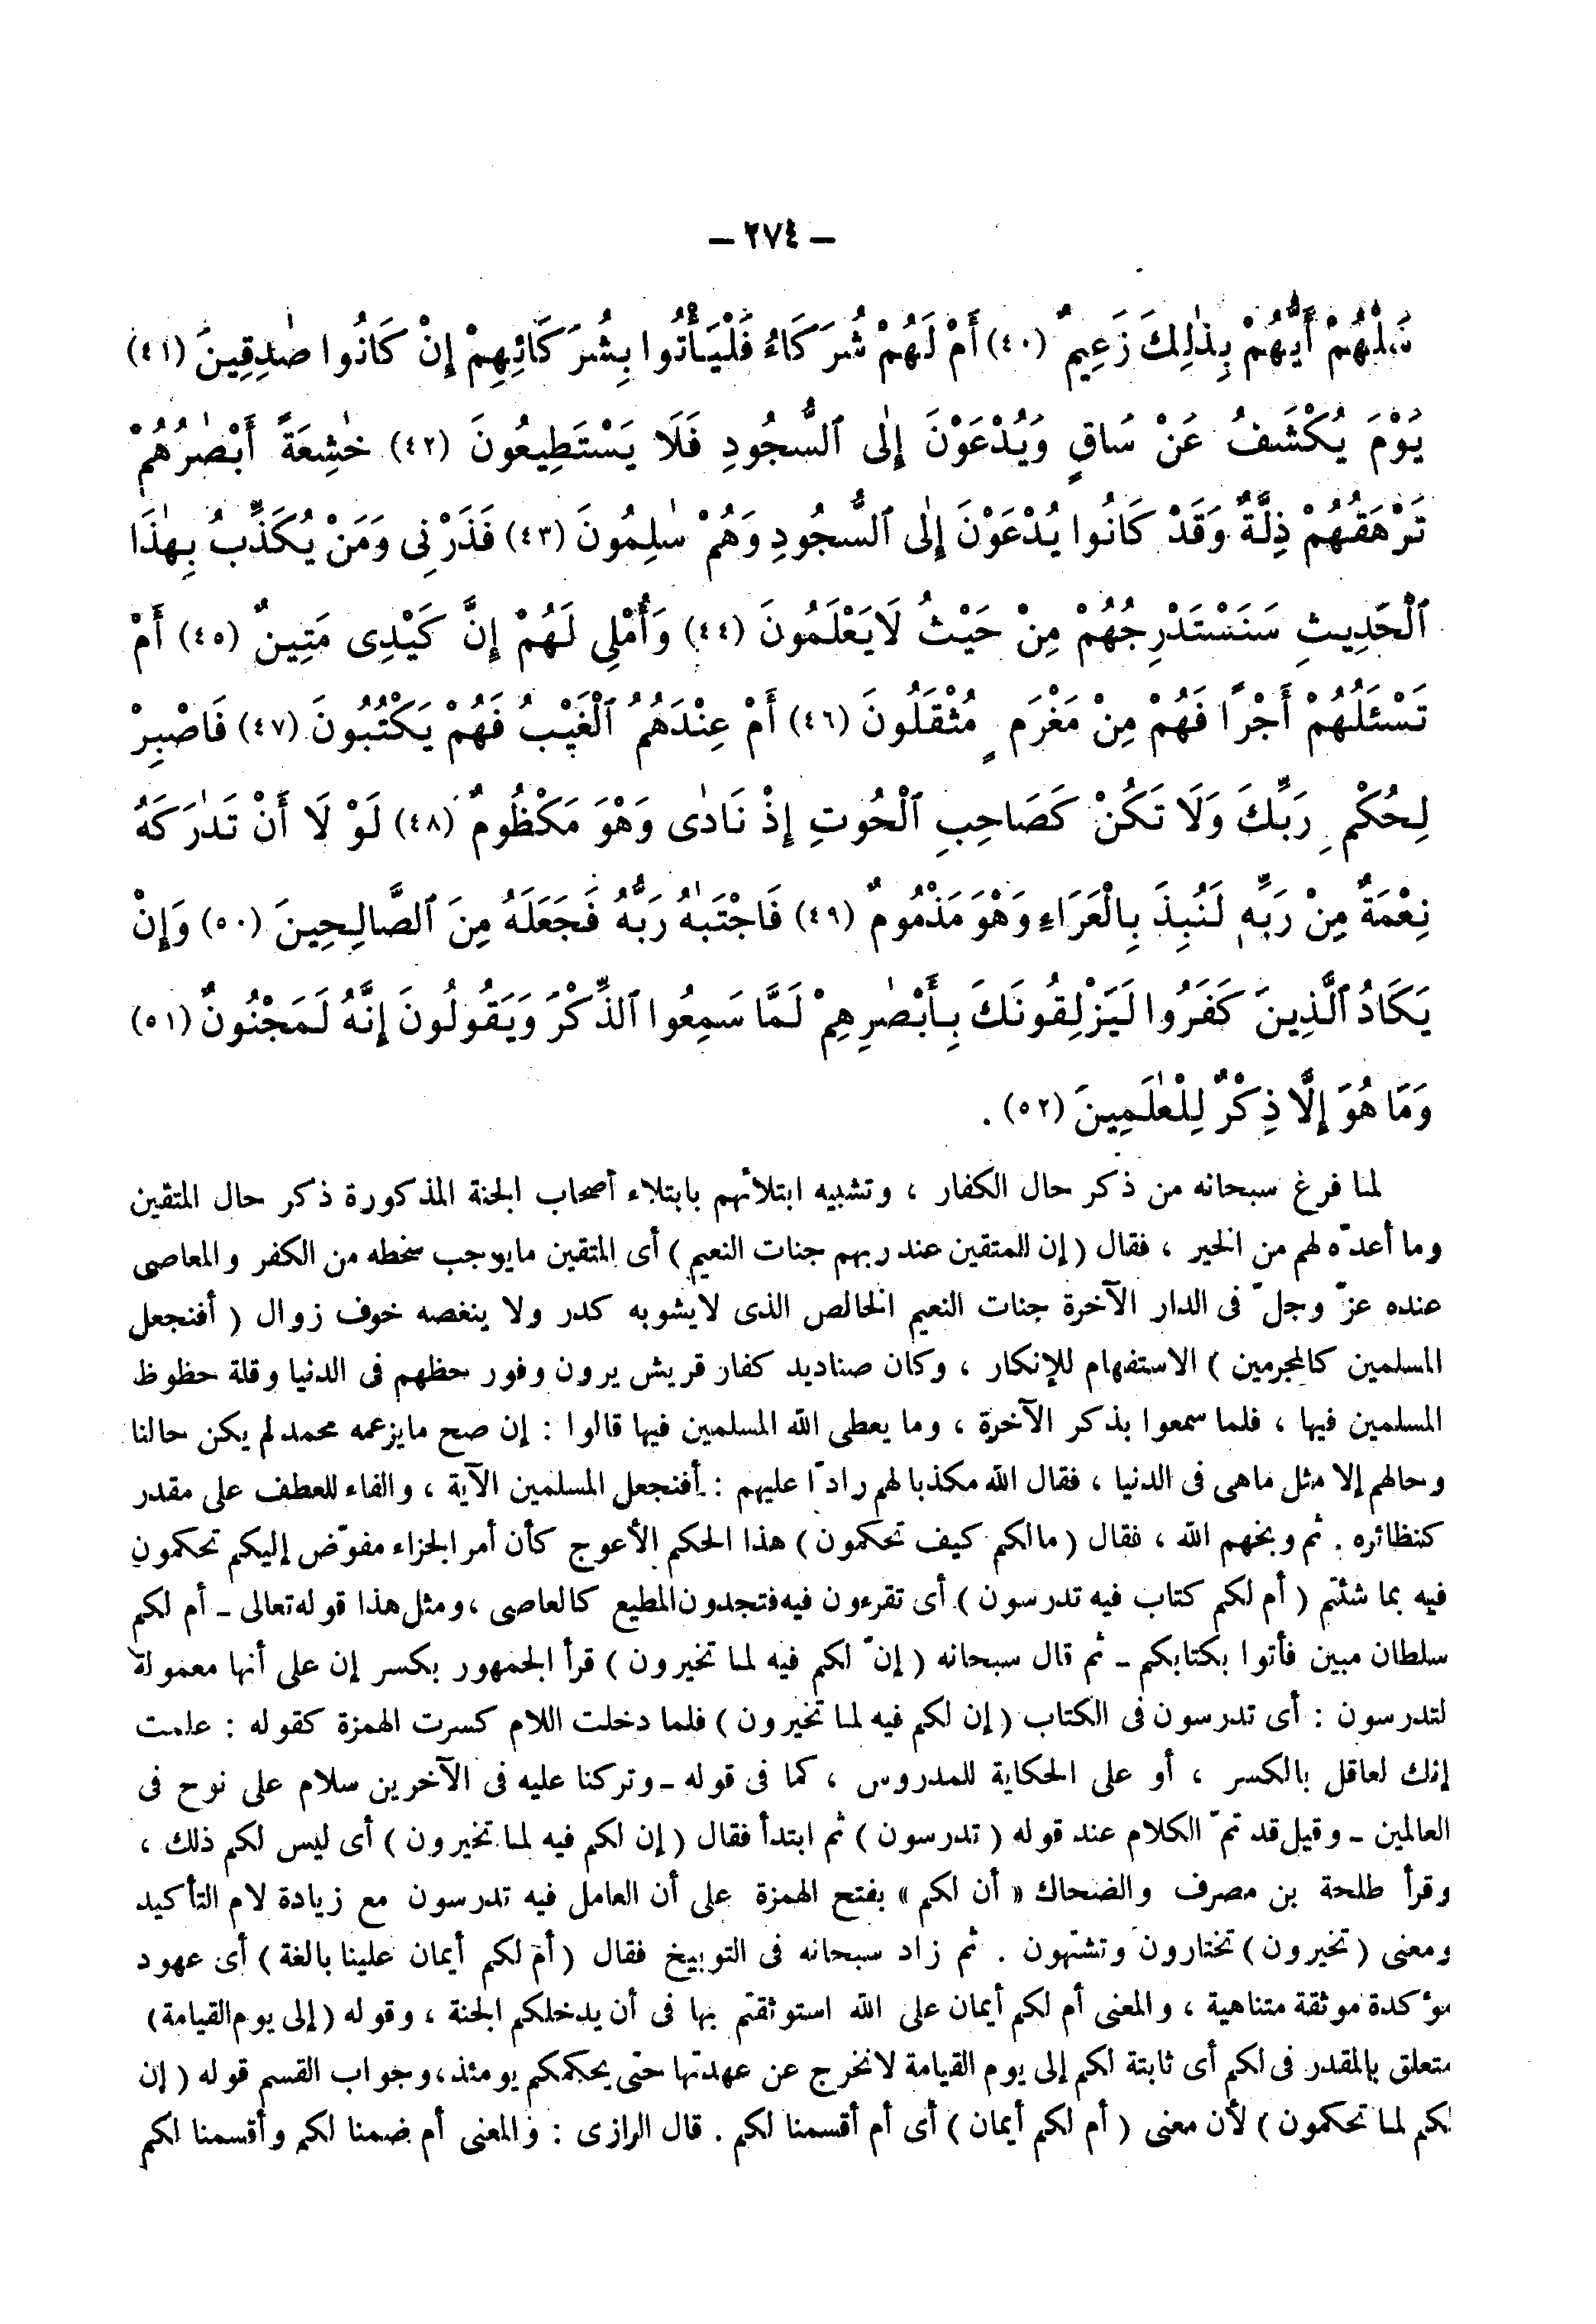 — ٢٧٤ —
سَلْهُمْ أَيُّهُمْ بِذٰلِكَ زَعِيمٌ (٤٠) أَمْ لَهُمْ شُرَكَاءُ فَلْيَأْتُوا بِشُرَكَائِهِمْ إِنْ كَانُوا صٰدِقِينَ (٤١)
يَوْمَ يُكْشَفُ عَنْ سَاقٍ وَيُدْعَوْنَ إِلٰى ٱلسُّجُودِ فَلَا يَسْتَطِيعُونَ (٤٢) خٰشِعَةً أَبْصٰرُهُمْ
تَرْهَقُهُمْ ذِلَّةٌ وَقَدْ كَانُوا يُدْعَوْنَ إِلٰى ٱلسُّجُودِ وَهُمْ سٰلِمُونَ (٤٣) فَذَرْنِى وَمَنْ يُكَذِّبُ بِهٰذَا
ٱلْحَدِيثِ سَنَسْتَدْرِجُهُمْ مِنْ حَيْثُ لَايَعْلَمُونَ (٤٤) وَأُمْلِى لَهُمْ إِنَّ كَيْدِى مَتِينٌ (٤٥) أَمْ
تَسْئَلُهُمْ أَجْرًا فَهُمْ مِنْ مَغْرَمٍ مُثْقَلُونَ (٤٦) أَمْ عِنْدَهُمُ ٱلْغَيْبُ فَهُمْ يَكْتُبُونَ (٤٧) فَاصْبِرْ
لِحُكْمِ رَبِّكَ وَلَا تَكُنْ كَصَاحِبِ ٱلْحُوتِ إِذْ نَادٰى وَهْوَ مَكْظُومٌ (٤٨) لَوْ لَا أَنْ تَدٰرَكَهُ
نِعْمَةٌ مِنْ رَبِّهِ لَنُبِذَ بِالْعَرَاءِ وَهْوَ مَذْمُومٌ (٤٩) فَاجْتَبٰهُ رَبُّهُ فَجَعَلَهُ مِنَ ٱلصَّالِحِينَ (٥٠) وَإِنْ
يَكَادُ ٱلَّذِينَ كَفَرُوا لَيَزْلِقُونَكَ بِأَبْصٰرِهِمْ لَمَّا سَمِعُوا ٱلذِّكْرَ وَيَقُولُونَ إِنَّهُ لَمَجْنُونٌ (٥١)
وَمَا هُوَ إِلَّا ذِكْرٌ لِلْعٰلَمِينَ (٥٢) .
لما فرغ سبحانه من ذكر حال الكفار ، وتشبيه ابتلائهم بابتلاء أصحاب الجنة المذكورة ذكر حال المتقين
وما أعدّه لهم من الخير ، فقال ( إن للمتقين عند ربهم جنات النعيم ) أى المتقين مايوجب سخطه من الكفر والمعاصى
عنده عزّ وجلّ فى الدار الآخرة جنات النعيم الخالص الذى لايشوبه كدر ولا ينغصه خوف زوال ( أفنجعل
المسلمين كالمجرمين ) الاستفهام للإنكار ، وكان صناديد كفار قريش يرون وفور حظهم فى الدنيا وقلة حظوظ
المسلمين فيها ، فلما سمعوا بذكر الآخرة ، وما يعطى الله المسلمين فيها قالوا : إن صح مايزعمه محمد لم يكن حالنا
وحالهم إلا مثل ماهى فى الدنيا ، فقال الله مكذبا لهم رادّا عليهم : أفنجعل المسلمين الآية ، والفاء للعطف على مقدر
كنظائره . ثم وبخهم الله ، فقال ( مالكم كيف تحكمون ) هذا الحكم الأعوج كأن أمر الجزاء مفوّض إليكم تحكمون
فيه بما شئتم ( أم لكم كتاب فيه تدرسون ) أى تقرءون فيه فتجدون المطيع كالعاصى ، ومثل هذا قوله تعالى ـ أم لكم
سلطان مبين فأتوا بكتابكم ـ ثم قال سبحانه ( إنّ لكم فيه لما تخيرون ) قرأ الجمهور بكسر إن على أنها معمولة
لتدرسون : أى تدرسون فى الكتاب ( إن لكم فيه لما تخيرون ) فلما دخلت اللام كسرت الهمزة كقوله : علمت
إنك لعاقل بالكسر ، أو على الحكاية للمدروس ، كما فى قوله ـ وتركنا عليه فى الآخرين سلام على نوح فى
العالمين ـ وقيل قد تمّ الكلام عند قوله ( تدرسون ) ثم ابتدأ فقال ( إن لكم فيه لما تخيرون ) أى ليس لكم ذلك ،
وقرأ طلحة بن مصرف والضحاك « أن لكم » بفتح الهمزة على أن العامل فيه تدرسون مع زيادة لام التأكيد
ومعنى ( تخيرون ) تختارون وتشتهون . ثم زاد سبحانه فى التوبيخ فقال ( أم لكم أيمان علينا بالغة ) أى عهود
مؤكدة موثقة متناهية ، والمعنى أم لكم أيمان على الله استوثقتم بها فى أن يدخلكم الجنة ، وقوله ( إلى يوم القيامة )
متعلق بالمقدر فى لكم أى ثابتة لكم إلى يوم القيامة لانخرج عن عهدتها حتى يحكمكم يومئذ ، وجواب القسم قوله ( إن
لكم لما تحكمون ) لأن معنى ( أم لكم أيمان ) أى أم أقسمنا لكم . قال الرازى : والمعنى أم ضمنا لكم وأقسمنا لكم